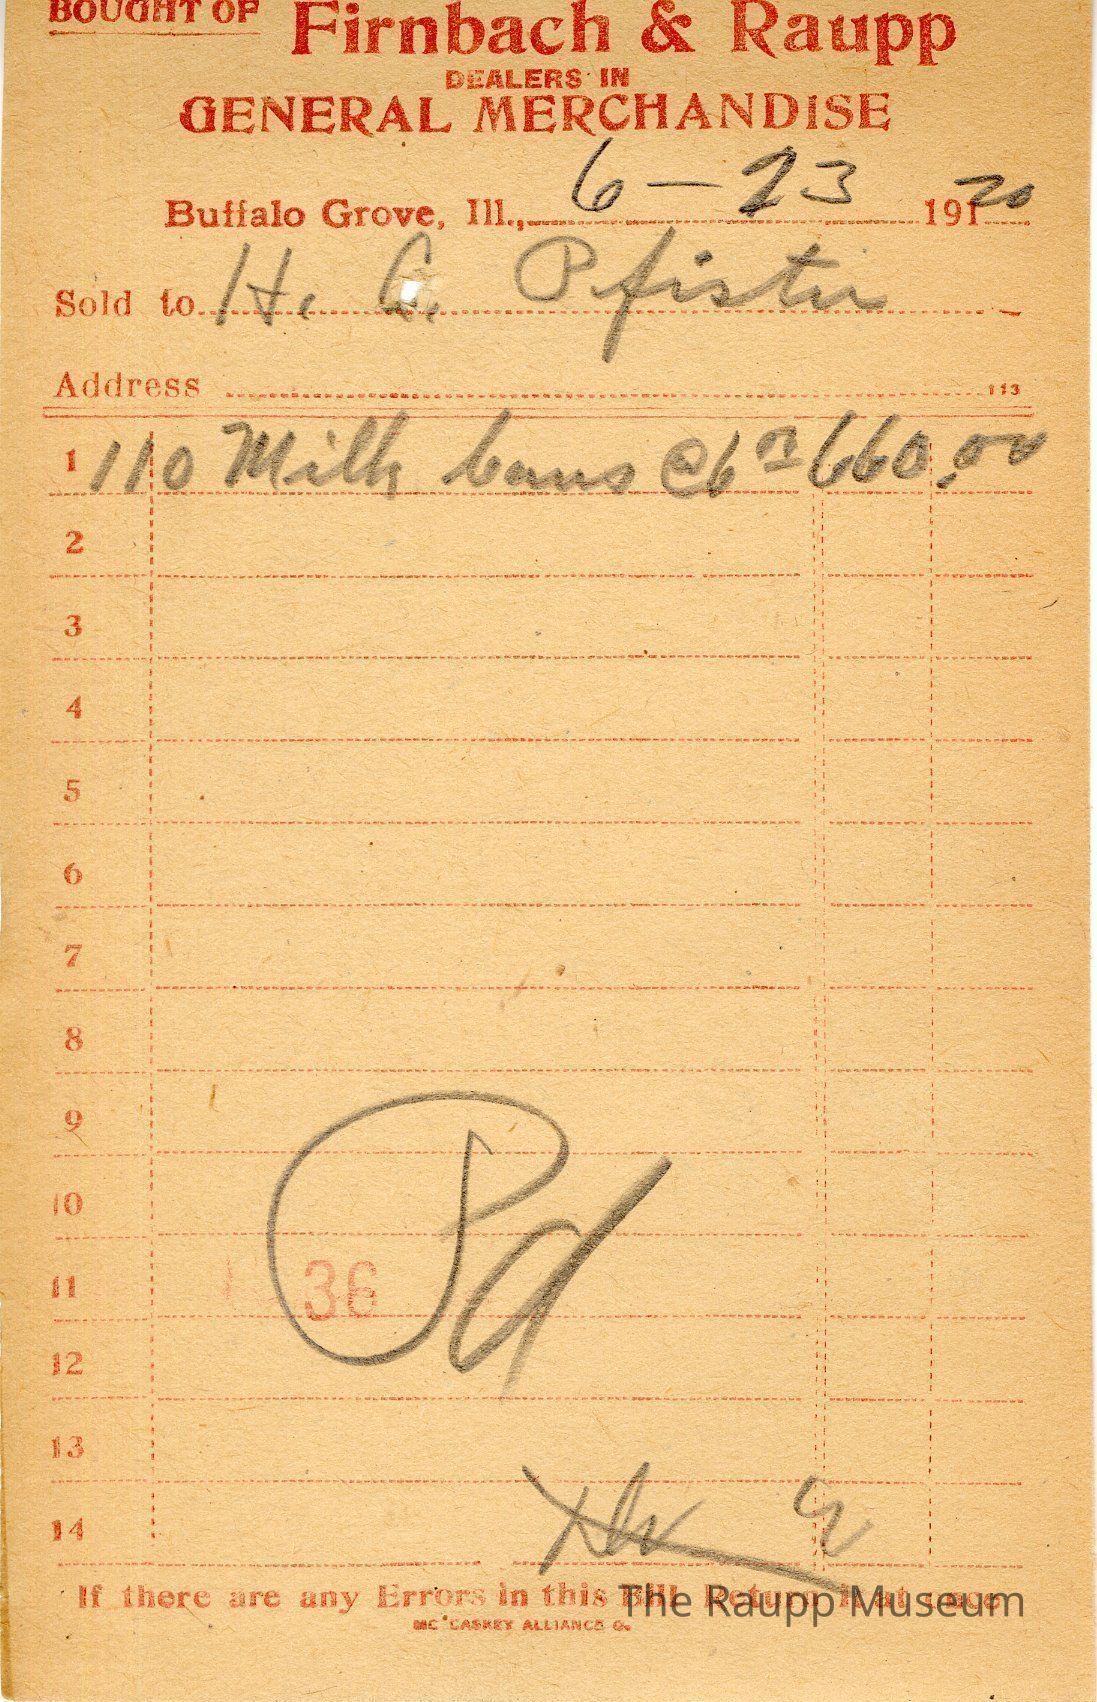 BOUGHT OF Firnbach & Raupp
DEALERS IN
GENERAL MERCHANDISE
Buffalo Grove, Ill., 6-23 19120
Sold to H. Pfister
Address 113
1 110 Milk Cans @ 6 00 660.00
2
3
4
5
6
7
8
9
10
11 36
12
13
14
Pd
If there are any Errors in this Bill Return it at once
MC CASKEY ALLIANCE O.
The Raupp Museum